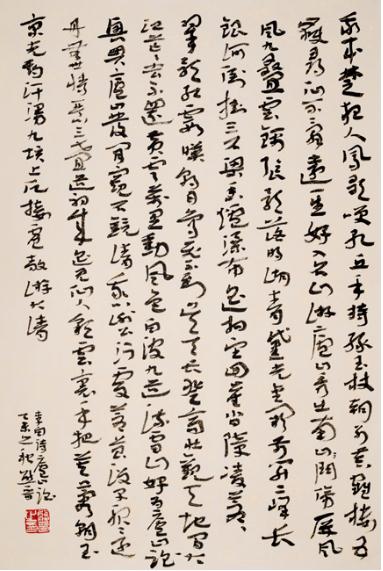 我本楚狂人鳳歌笑孔丘手持綠玉杖朝別黃鶴樓五
嶽尋仙不辭遠一生好入名山遊廬山秀出南斗傍屏風
風九疊雲錦張影落明湖青黛光金闕前開二峰長
銀河倒掛三石梁香爐瀑布遙相望回崖沓嶂凌蒼蒼
翠影紅霞映朝日鳥飛不到吳天長登高壯觀天地間大
江茫茫去不還黃雲萬里動風色白波九道流雪山好為廬山謠
興因廬山發閒窺石鏡清我心謝公行處蒼苔沒早服還
丹無世情琴心三疊道初成遙見仙人彩雲裏手把芙蓉朝玉
京先期汗漫九垓上願接盧敖遊太清
李白詩廬山謠
之秋